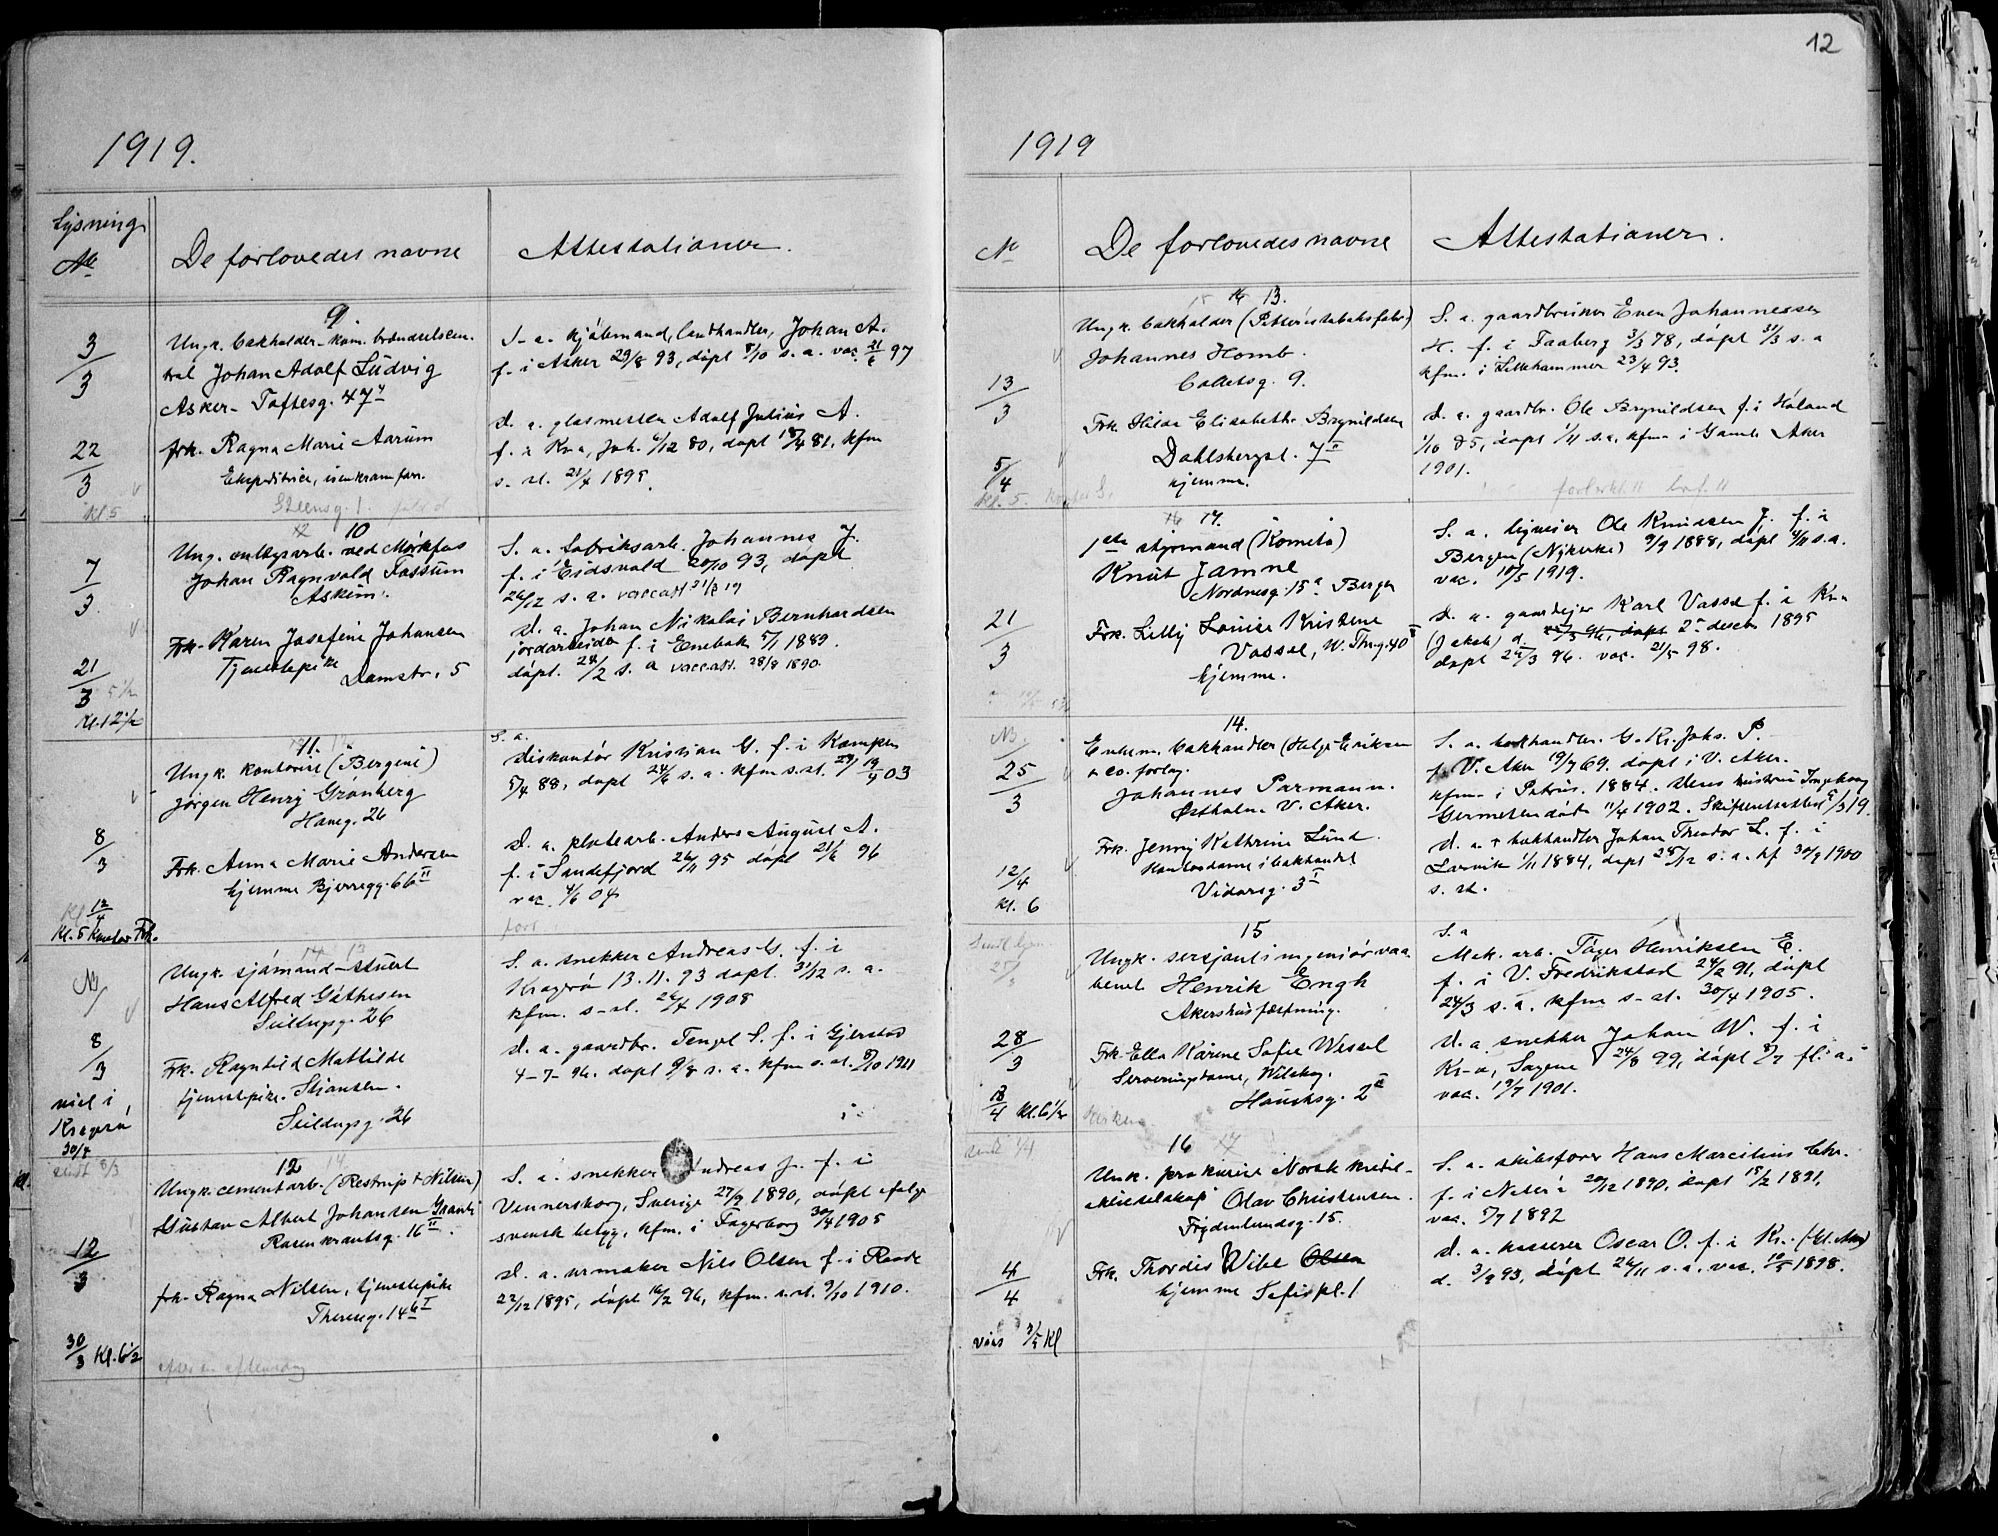 12
1919.
Lysning
No
De forlovedes navne
Attestationer.
9.
3/3
Ungk. bokholder - kom. brændselscen-
tral Johan Adolf Ludvig
Asker - Toftesg. 47
22/3
frk. Ragna Marie Aarum
Ekspeditrice, isenkramforr.
Steensg. 1.
kl 5
S. a. kjøbmand, landhandler, Johan A.
f. i Asker 29/8 93, døpt 8/10 s. a. vac. 21/6 97
D. a. glasmester Adolf Julius A.
f. i Kr.a, Joh. 6/12 80, døpt 18/4 81, kfm
s. st. 21/4 1895.
10
7/3
Ung. anlægsarb. ved Mørkfos
Johan Ragnvald Fossum
Askim.
21/3
Frk. Karen Josefine Johansen
Tjenestepike
Damstr. 5
Kl. 12 1/2
S. a. fabriksarb. Johannes J.
f. i Eidsvold 20/10 93, døpt
26/12 s. a. vaccatt 21/3 19
D. a. Johan Nikolai Bernhardsen
jordarbeider f. i Enebak 5/1 1889.
døpt. 24/2 s. a vaccatt. 28/8 1890.
11.
Ungk. kontorist (Bergene)
Jørgen Henry Grønberg
Hansg. 26
8/3
Frk. Anna Marie Andersen
hjemme Bjerregg. 66 II
12/4
Kl. 5 Kontor Frk.
S. a.
diskontør Kristian G. f. i Kampen
5/4 88, døpt 24/6 s. a. kfm s. st. 19/4 03
D. a. platearb. Anders August A.
f. i Sandefjord 26/11 95 døpt 21/6 96
vac. 4/6 04
Ungk. sjømand - stuert
Hans Alfred Gáthesen
Seildugsg. 26
8/3
Frk. Ragnhild Mathilde
tjenestepike. Stiansen.
Seildugsg. 26
viet i
Kragerø
30/4
S. a. snekker Andreas G. f. i
Kragerø 13. 11. 93 døpt 31/12 s. a.
kfm. s. st. 26/4 1908
D. a. gaardbr. Tengel S. f. i Gjerstad
4-7-96. døpt 9/8 s. a. kfm s. st. 8/10 1911
12
Ungk. cementarb. (Restrup & Nilsen)
Gustav Albert Johansen
Rosenkrantsg. 16 II
12/3
frk. Ragna Nilsen, tjenestepike
Theresg. 14 I
30/3 Kl. 6 1/2
S. a. snekker Andreas J. f. i
Vennersborg, Sverige 27/9 1890, døpt ifølge
svensk betyg, kfm. i Fagerborg 30/4 1905
D. a. urmaker Nils Olsen f. i Raade
22/12 1895, døpt 16/2 96, kfm. s. st. 9/10 1910.
1919
No
De forlovedes navne
Attestationer.
13.
Ungk. bokholder (Petterøes tobaksfabr.)
Johannes Homb.
13/3
Colletsg. 9.
Frk. Hilda Elisabeth Brynildsen
5/4
Dahlsbergst. 7 II
hjemme.
kl. 5.
S. a. gaardbruker Even Johannessen
H. f. i Faaberg 3/3 78, døpt 31/3 s. a
kfm. i Lillehammer 23/4 93.
D. a. gaardbr. Ole Brynildsen f. i Høland
1/10 85, døpt 1/11 s. a. kfm i Gamle Aker
1901.
1ste styrmand (Kometa)
Knut Jamne
Nordnesg. 15a Bergen
21/3
Frk. Lilly Louise Kristine
Vassel, W. Thr.g. 40
hjemme.
S. a. ligniser Ole Knudsen J. f. i
Bergen (Nykirke) 9/9 1888, døpt 4/11 s. a.
vac. 10/5 1919.
D. a. gaardejer Karl Vassel f. i Kr.a
(Jakob) d. 2. desem 1895
døpt 25/3 96. vac. 21/5 98.
14.
25/3
Enkem. bokhandler (Helge Eriksen
& co. forlag.
Johannes Parmann.
Østholm V. Aker.
Frk. Jenny Kathrine Lund.
Kontordame i bokhandel
12/4
Vidarsg. 3 I
kl. 6
S. a. bokhandler G. Kr. Johs. P.
f. V. Aker 19/7 69. døpt i V. Aker.
kfm. i Petrus. 1884. Dens hustru Ingeborg
død 11/4 1902. Skifteattest 5/3 19.
D. a. bokhandler Johan Theodor L. f. i
Larvik 1/11 1884, døpt 25/12 s. a. kf 30/9 1900
s. st.
15
Ungk. sersjant i ingeniørvaa-
benet Henrik Engh
Akershus fæstning.
28/3
Frk. Ella Karine Sofie Wessel
Serveringsdame,
Hausmsg. 2 II
18/4 kl. 6 1/2
S. a
Mek. arb. Tøger Henriksen E.
f. i V. Fredrikstad 24/2 91, døpt
24/3 s. a. kfm s. st. 30/4 1905.
D. a. snekker Johan W. f. i
Kr-a, Sagene 24/8 99, døpt
vac. 19/7 1901.
16
Unk. prokurist Norsk kredit-
aktieselskap Olav Christensen.
Frydenlundsg. 15.
4/4
Frk. Thordis Wibe Olsen
hjemme Sofiespl. 1
vies 3/5 Kl
S. a. skibsfører Hans Marcelius Chr.
f. i 20/12 1890, døpt 15/2 1891,
vac. 5/7 1892
D. a. kasserer Oscar O. f. i Kr.
d. 3/9 93, døpt 26/11 s. a. vac. 10/5 1898.